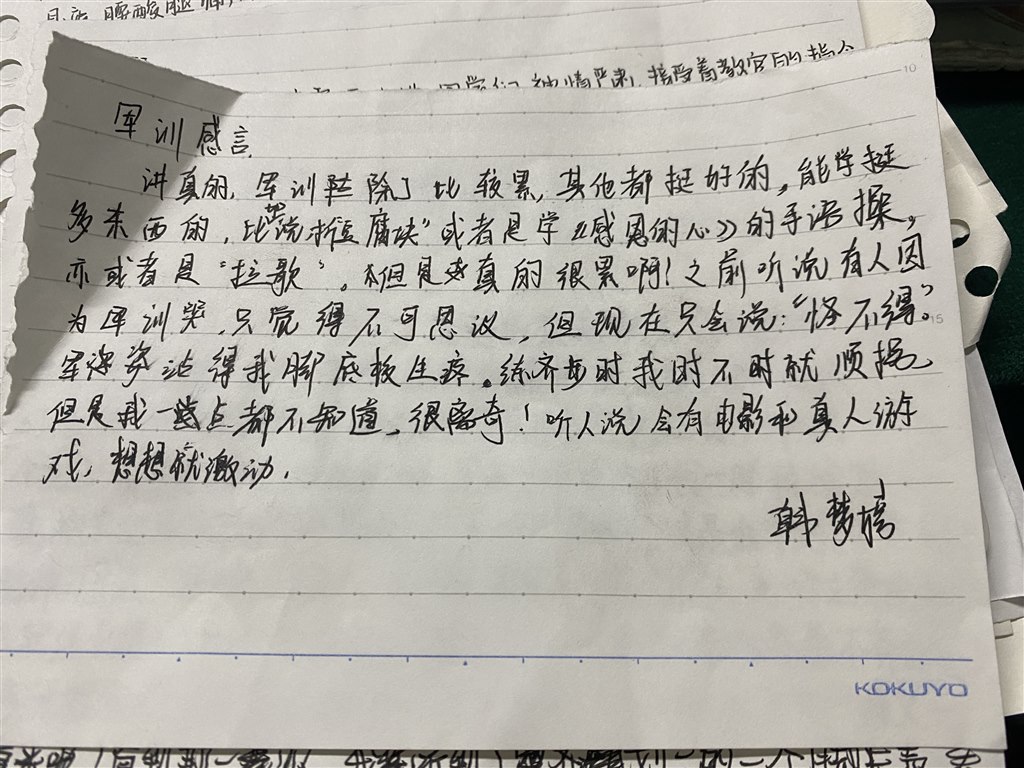 同学们神情严肃，接受着教官的指令
10
军训感言
讲真的，军训除了比较累，其他都挺好的，能学挺
多东西的，比如说折豆腐块”或者是学《感恩的心》的手语操，
亦或者是“拉歌”。但是真的很累啊！之前听说有人因
为军训哭，只觉得不可思议，但现在只会说：“怪不得。”
15
军姿站得我脚底板生疼。练齐步时我时不时就顺拐，
但是我一点都不知道，很离奇！听人说会有电影和真人游
戏，想想就激动。
韩梦
KOKUYO